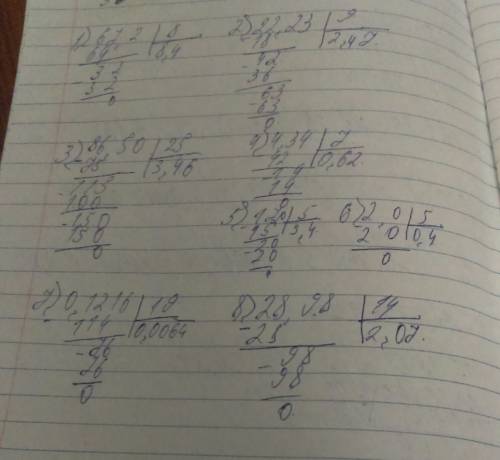 1) 67,2 | 8
64 | 8,4
- 32
32
0
2) 22,23 | 9
18 | 2,47.
- 42
36
- 63
63
0
3) 86,50 | 25
75 | 3,46
- 115
100
- 150
150
0
4) 4,34 | 7
42 | 0,62.
14
14
0
5) | 5
15 | 3,4
- 20
20
6) 2,0 | 5
2 0 | 0,4
0
7) 0,1216 | 19
- 114 | 0,0064
- 76
76
0
8) 28,98 | 14
- 28 | 2,07.
- 98
98
0